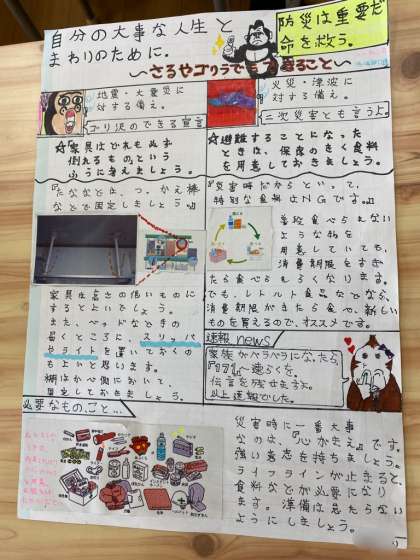 自分の大事な人生と
まわりのために。
防災は重要だ
命を救う。
〜さるやゴリラでもできること〜
地震・大震災に
対する備え。
ゴリ沢のできる宣言
火災・津波に
対する備え。
二次災害とも言うよ。
☆家具はどれも必ず
倒れるものという
ふうに考えましょう。
☆避難することになった
ときは、保存のきく食料
を用意しておきましょう。
『たななどは、つっかえ棒
などで固定しましょう。』
家具は高さの低いものに
するとよいでしょう。
また、ベッドなどの
届くところに、スリッパ
やライトを置いておくの
もよいと思います。
棚はかべ側において、
固定しておきましょう。
『災害時だからといって、
特別な食料はNGです。』
普段食べられない
ような物を
用意していても、
消費期限をすぎ
たら食べられなくなります。
でも、レトルト食品などなら、
消費期限がきたら食べ、新しい
ものを買えるので、オススメです。
速報 news
家族がバラバラになったら
『171』へ連らくを。
伝言を残せますよ。
以上速報でした。
必要なもの、こと...
災害時に一番大事
なのは、『心がまえ』です。
強い意志を持ちましょう。
ライフラインが止まると、
食料などが必要になり
ます。準備は怠たらない
ようにしましょう。